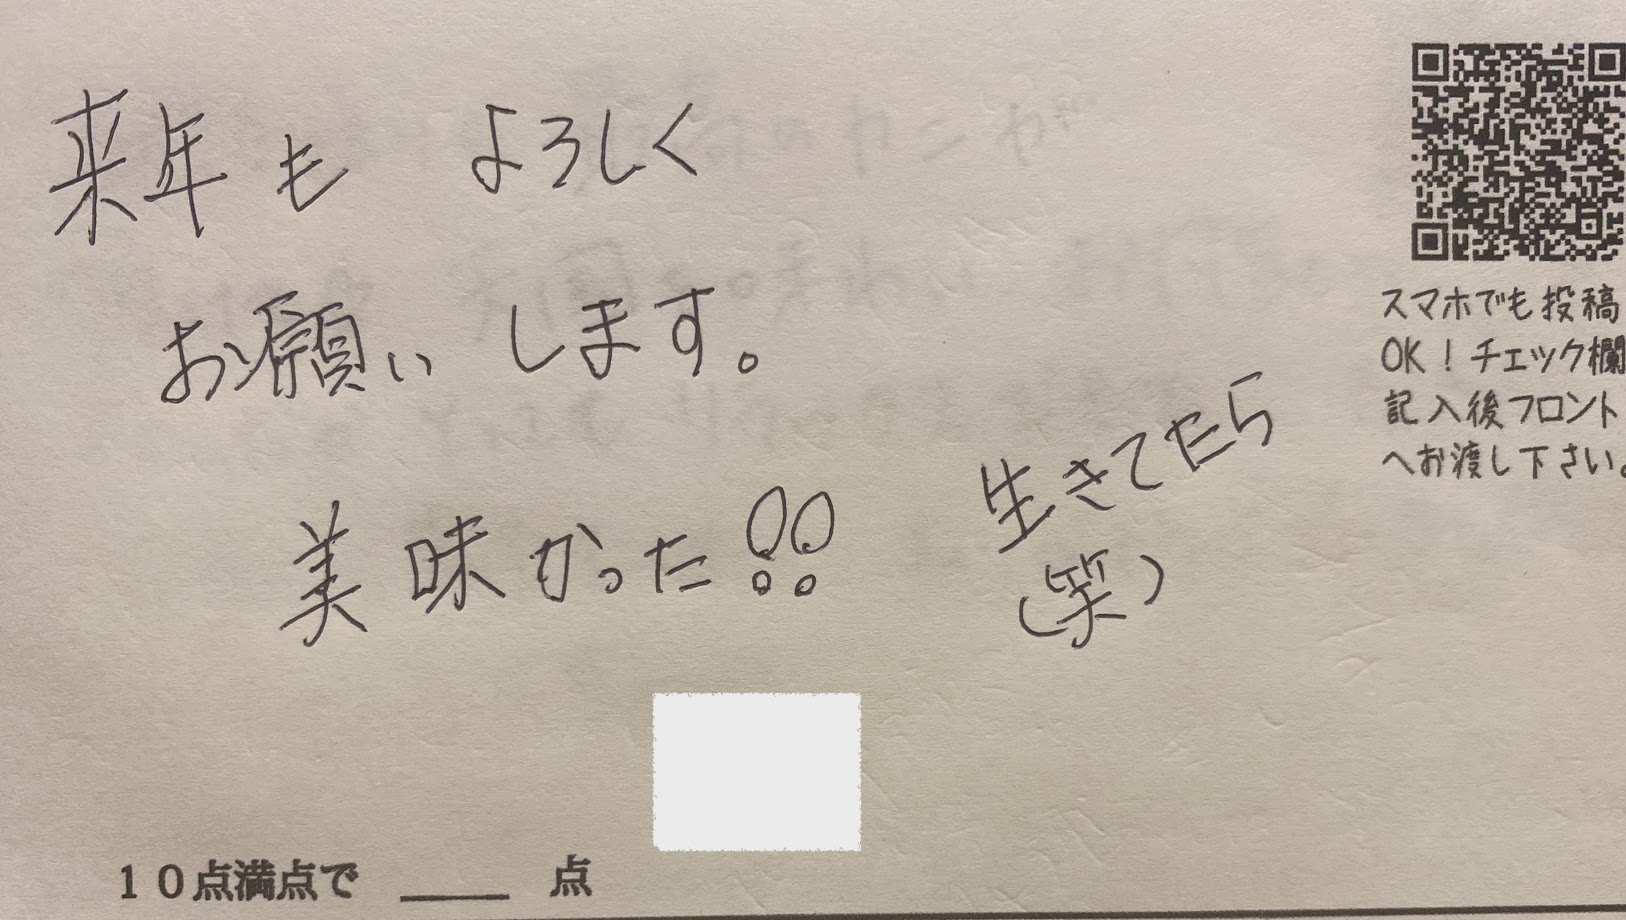 来年も よろしく
お願い します。
美味かった!!
生きてたら
(笑)
スマホでも投稿
OK!チェック欄
記入後フロント
へお渡し下さい。
10点満点で ____ 点